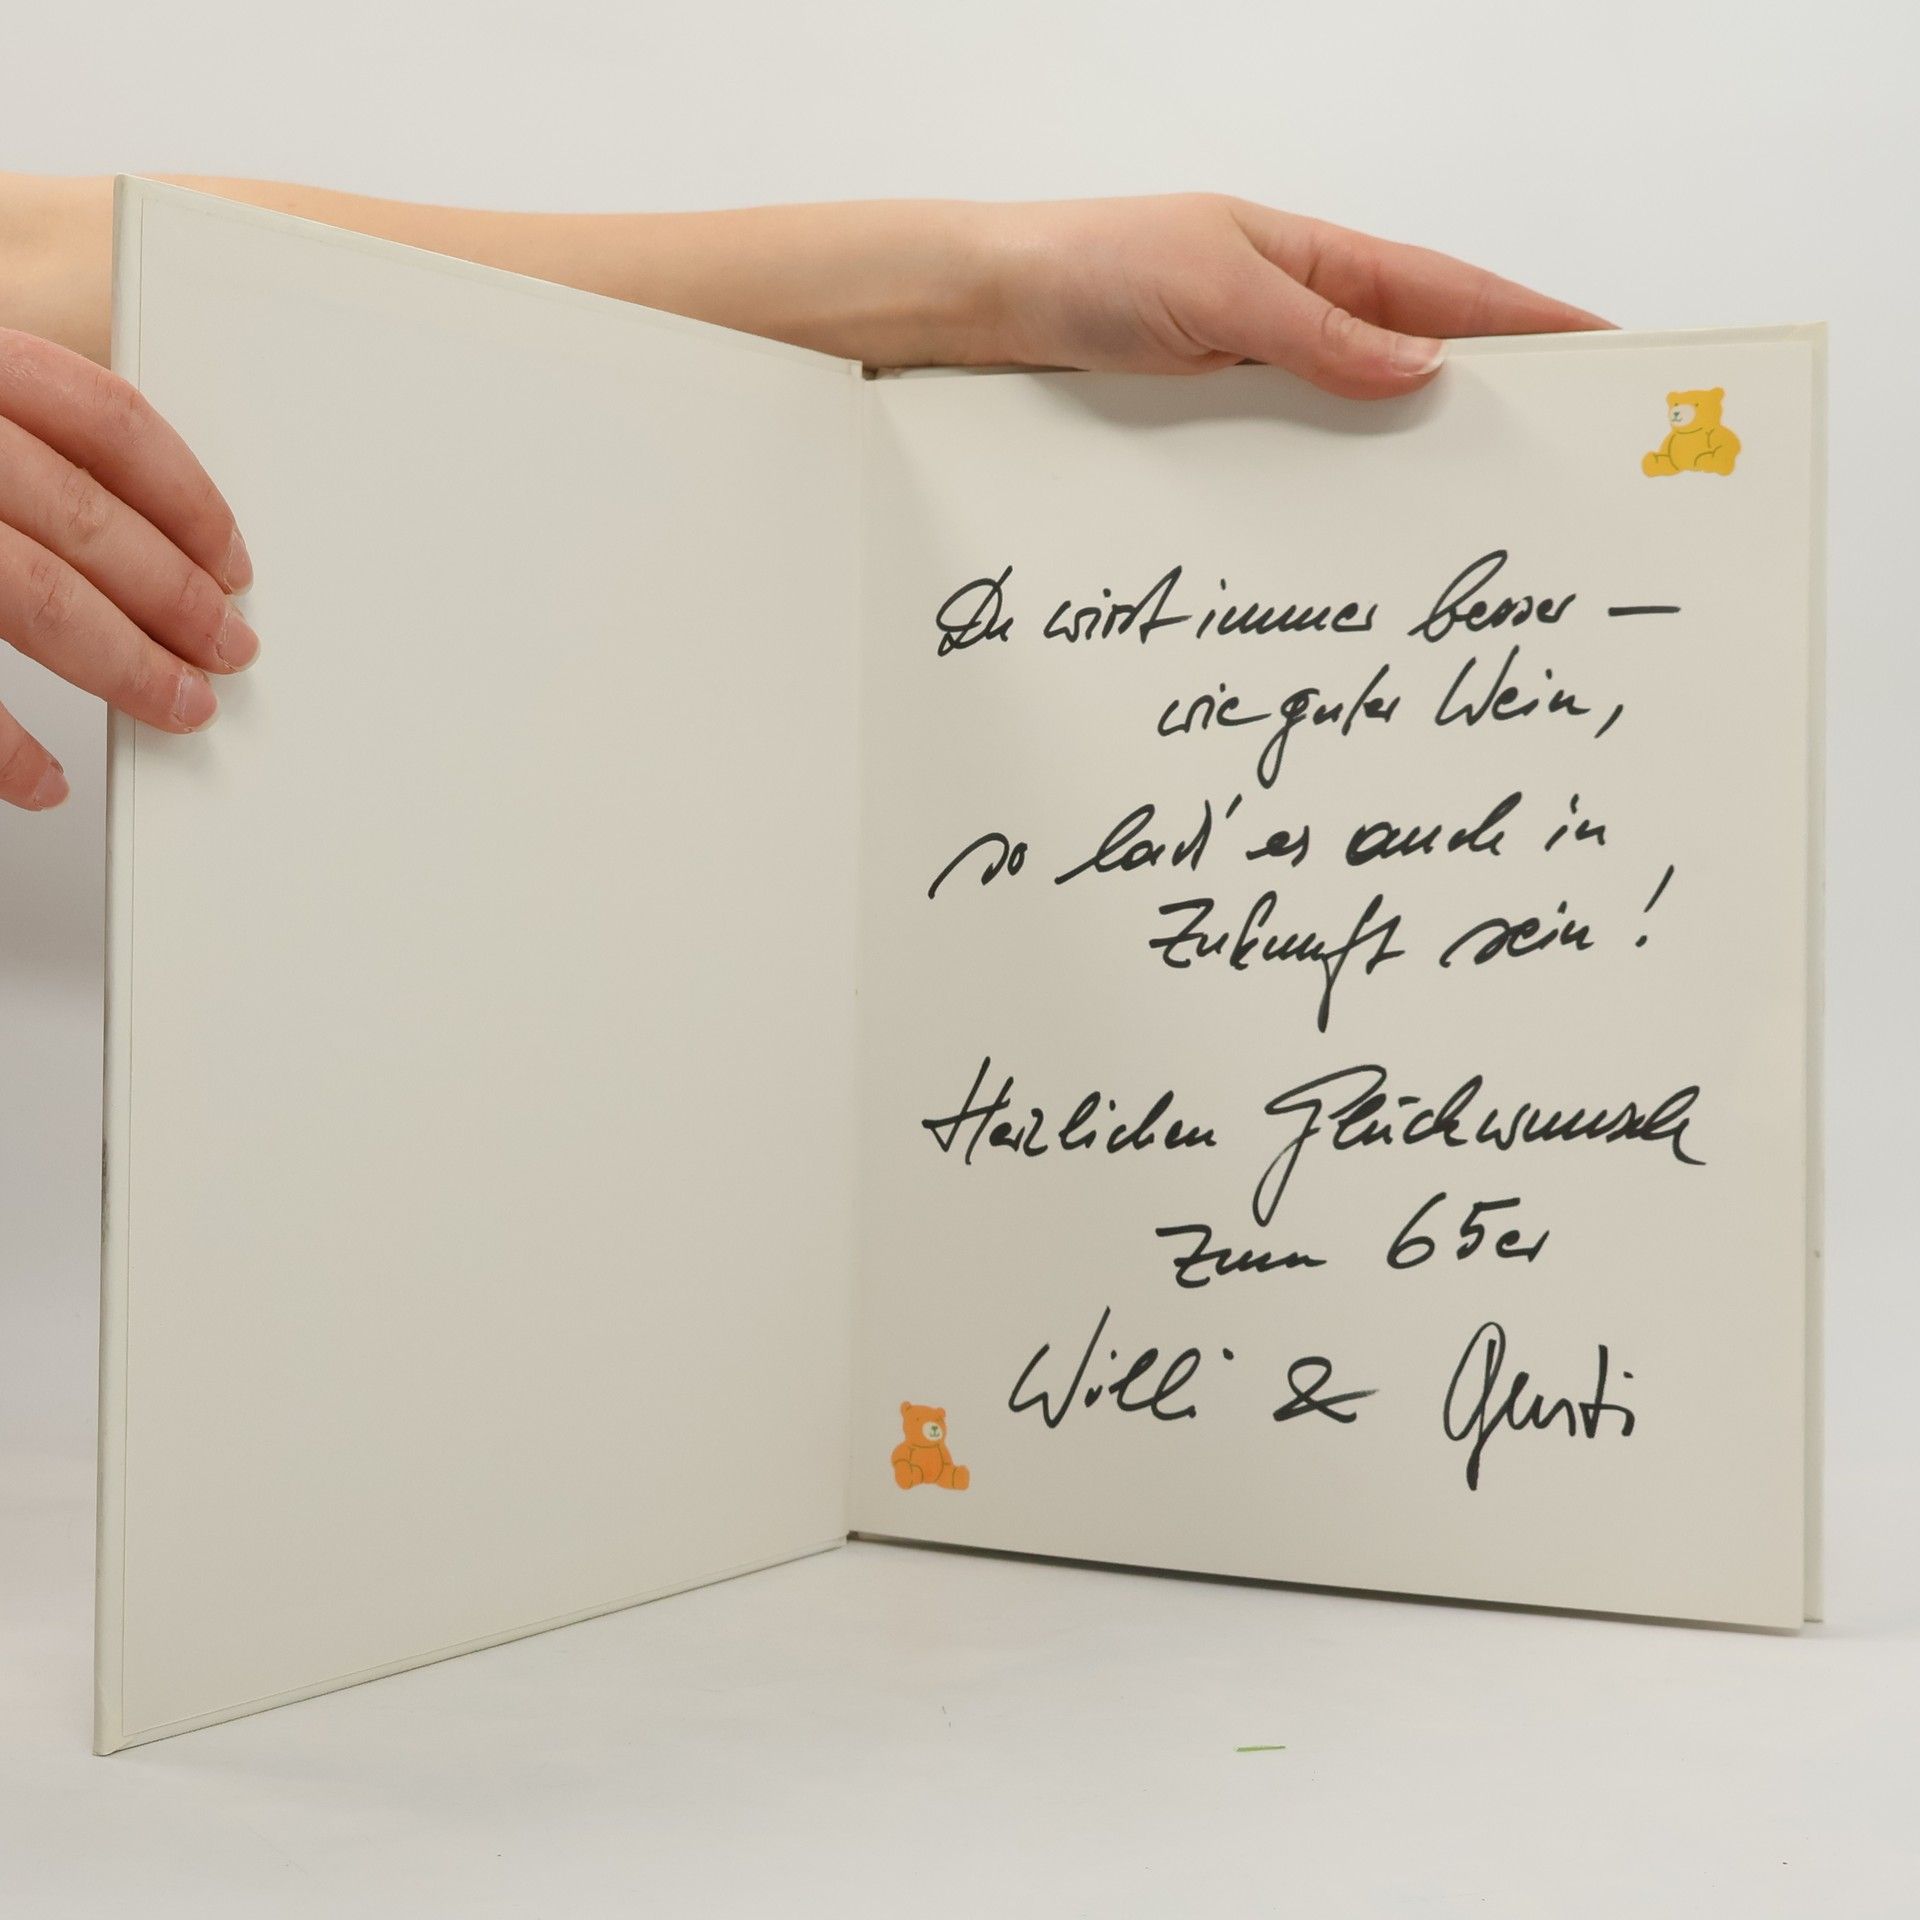 Du wirst immer besser –
wie guter Wein,
so lass' es auch in
Zukunft sein!
Herzlichen Glückwunsch
zum 65er
Willi & Gusti